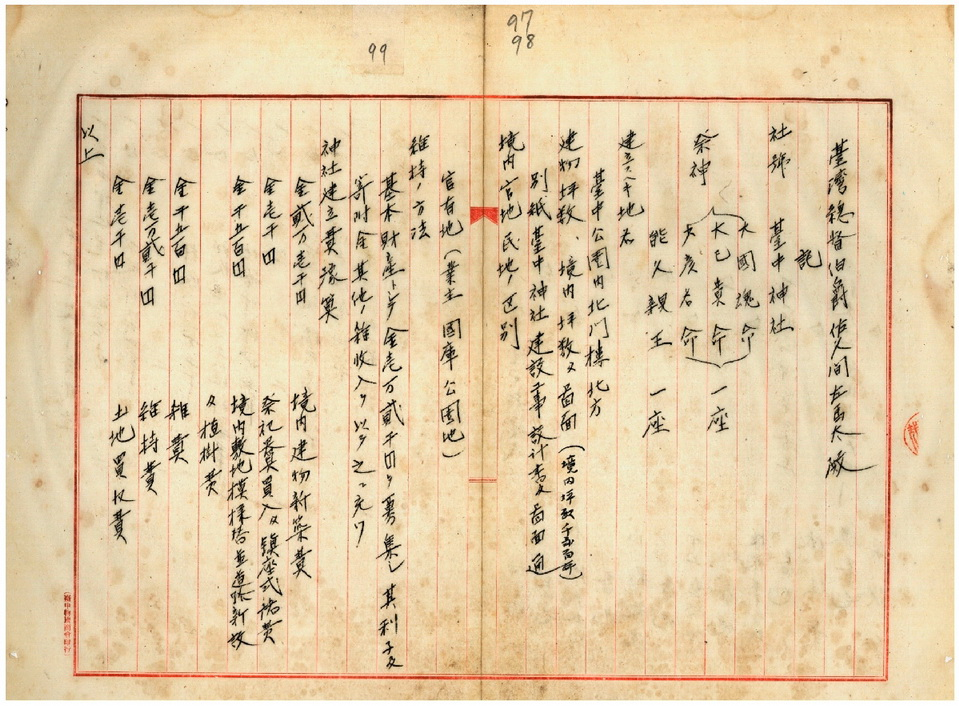 97
98
99
臺灣總督伯爵佐久間左馬太殿
記
社號 臺中神社
祭神 大國魂命
大己貴命 一座
少彥名命
能久親王 一座
建立スヘキ地名
臺中公園内北門樓北方
建物坪数、境内坪数及畱面(境内坪数千五百坪)
別紙臺中神社建設工事設計書及畱面通
境内官地民地ノ区別
官有地(業主國庫公園地)
維持ノ方法
基本財產トシテ金壱万貳千円ヲ募集シ其利子及
寄附金其他ノ雜收入ヲ以テ之ニ充ツ
神社建立費豫算
金貳万壱千円 境内建物新築費
金壱千円 祭祀具費買入及鎮座式諸費
金千五百円 境内敷地模樣替並道路新設
及植樹費
金千五百円 雜費
金壱万貳千円 維持費
金壱千円 土地買收費
以上